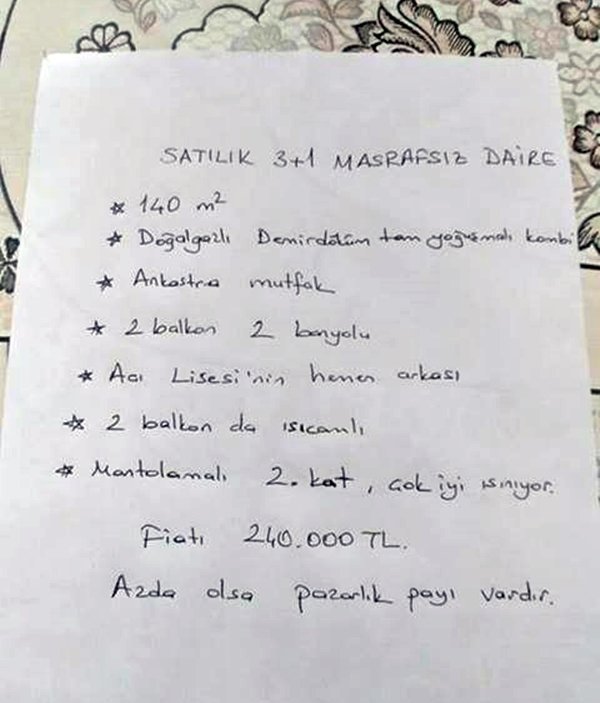 SATILIK 3+1 MASRAFSIZ DAİRE
* 140 m²
* Doğalgazlı Demirdöküm tam yoğuşmalı kombi
* Ankastra mutfak
* 2 balkon 2 banyolu
* Acı Lisesi'nin hemen arkası
* 2 balkon da ısıcamlı
* Mantolamalı 2. kat, çok iyi ısınıyor.
Fiatı 240.000 TL.
Azda olsa pazarlık payı vardır.